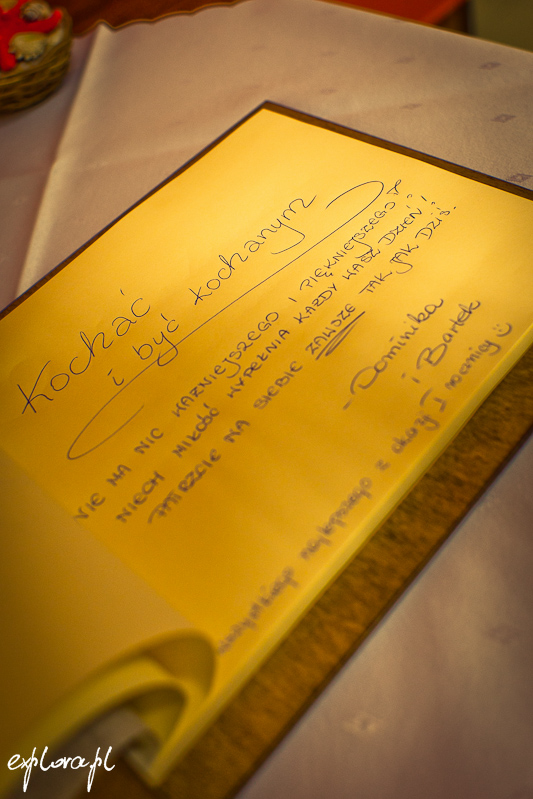 Kochać
i być kochanym
NIE MA NIC WAŻNIEJSZEGO I PIĘKNIEJSZEGO
NIECH MIŁOŚĆ WYPEŁNIA KAŻDY WASZ DZIEŃ!
PATRZCIE NA SIEBIE ZAWSZE TAK JAK DZIŚ.
- Dominika
i Bartek
wszystkiego najlepszego z okazji I rocznicy
explora.pl